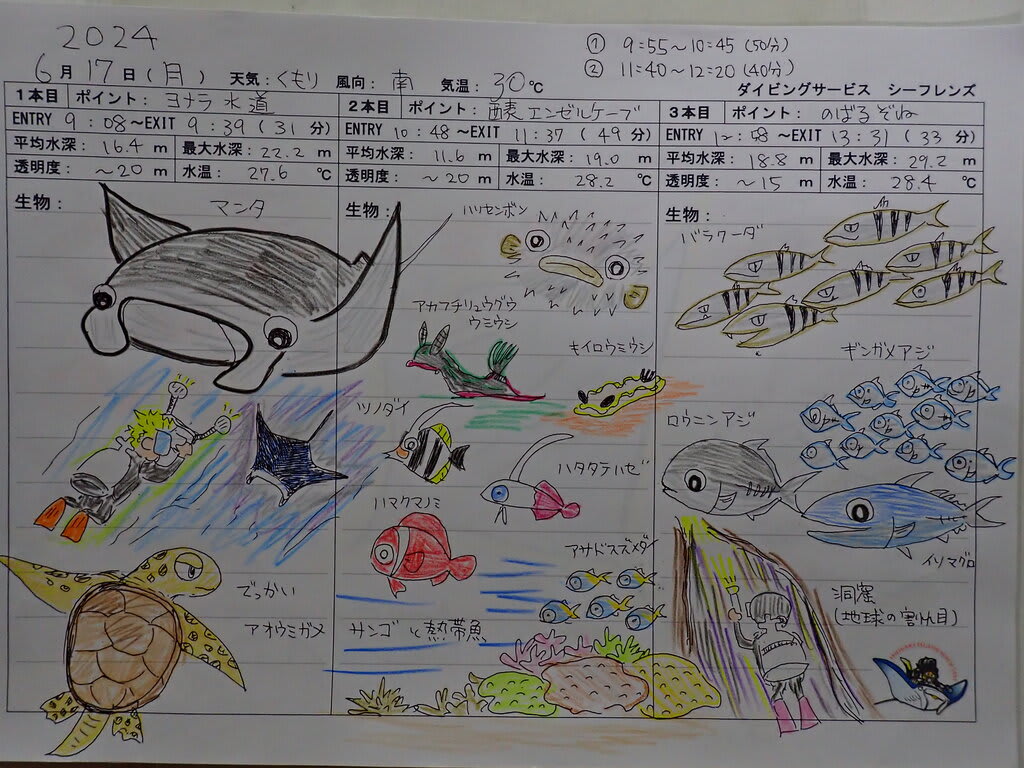 2024
① 9:55～10:45 (50分)
② 11:40～12:20 (40分)
6月17日(月) 天気:くもり 風向:南 気温:30℃
ダイビングサービス シーフレンズ
1本目 ポイント: ヨナラ水道
ENTRY 9:08～EXIT 9:39 (31分)
平均水深: 16.4 m 最大水深: 22.2 m
透明度: ～20 m 水温: 27.6 ℃
生物:
マンタ
でっかい
アオウミガメ
2本目 ポイント: エンゼルケーブ
ENTRY 10:48～EXIT 11:37 (49分)
平均水深: 11.6 m 最大水深: 19.0 m
透明度: ～20 m 水温: 28.2 ℃
生物:
ハリセンボン
アカフチリュウグウ
ウミウシ
キイロウミウシ
ツノダイ
ハタタテハゼ
ハマクマノミ
アサドスズメダイ
サンゴと熱帯魚
3本目 ポイント: のばるぞね
ENTRY 12:58～EXIT 13:31 (33分)
平均水深: 18.8 m 最大水深: 29.2 m
透明度: ～15 m 水温: 28.4 ℃
生物:
バラクーダ
ギンガメアジ
ロウニンアジ
イソマグロ
洞窟
(地球の割れ目)